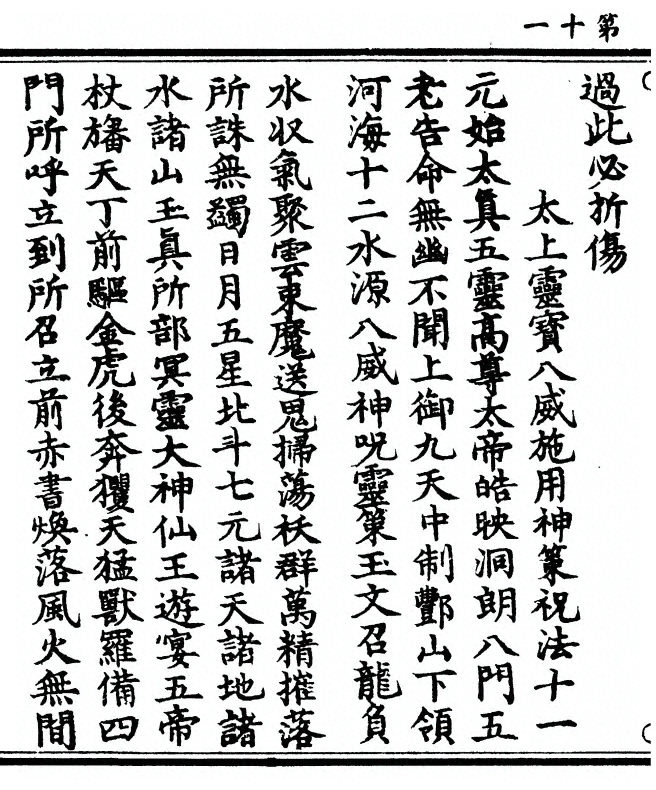 第十一
過此必折傷
太上靈寶八威施用神策祝法十一
元始太眞五靈高尊太帝皓映洞朗八門五
老告命無幽不聞上御九天中制酆山下領
河海十二水源八威神呪靈策玉文召龍負
水収氣聚雲束魔送鬼掃蕩袄群萬精摧落
所誅無蠲日月五星北斗七元諸天諸地諸
水諸山玉眞所部冥靈大神仙王遊宴五帝
杖旛天丁前驅金虎後奔玃天猛獸羅備四
門所呼立到所召立前赤書煥落風火無間